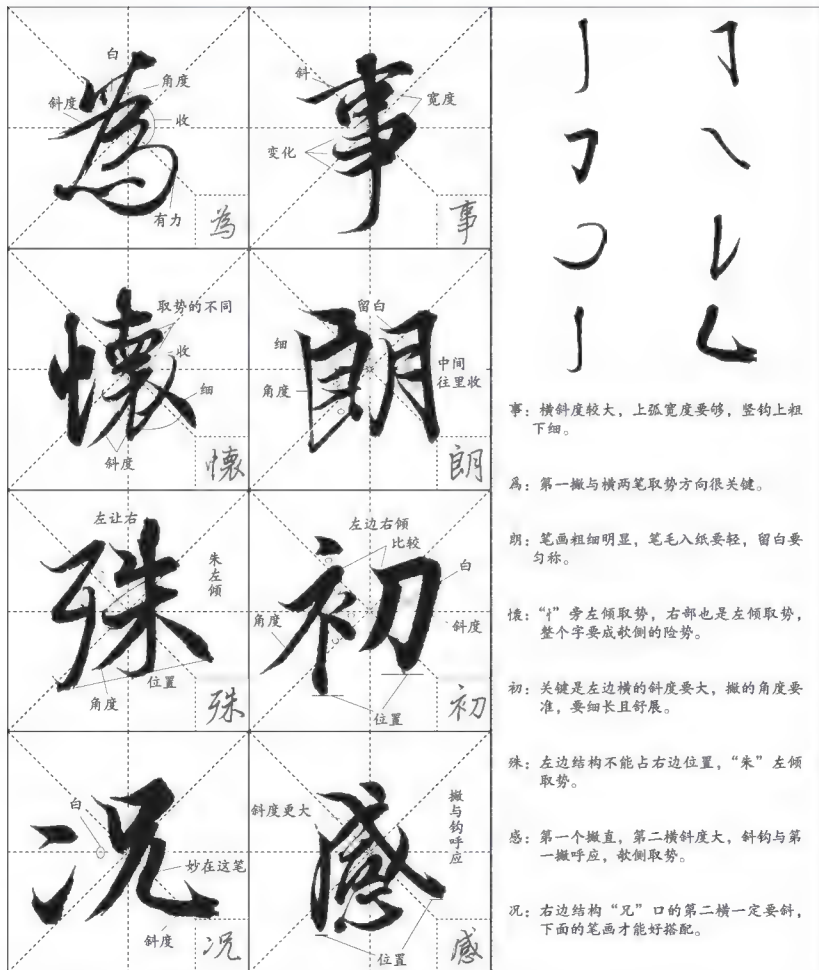 白
角度
斜度
收
有力
為
為
斜
宽度
变化
事
事
取势的不同
收
细
斜度
懷
懷
留白
细
角度
中间
往里收
朗
朗
左让右
朱左倾
位置
角度
殊
殊
左边右倾
比较
白
角度
斜度
位置
初
初
白
妙在这笔
斜度
况
况
斜度更大
撇与钩呼应
位置
感
感
事：横斜度较大，上弧宽度要够，竖钩上粗
下细。
為：第一撇与横两笔取势方向很关键。
朗：笔画粗细明显，笔毛入纸要轻，留白要
匀称。
懷：“忄”旁左倾取势，右部也是左倾取势，
整个字要成欹侧的险势。
初：关键是左边横的斜度要大，撇的角度要
准，要细长且舒展。
殊：左边结构不能占右边位置，“朱”左倾
取势。
感：第一个撇直，第二横斜度大，斜钩与第
一撇呼应，欹侧取势。
况：右边结构“兄”口的第二横一定要斜，
下面的笔画才能好搭配。